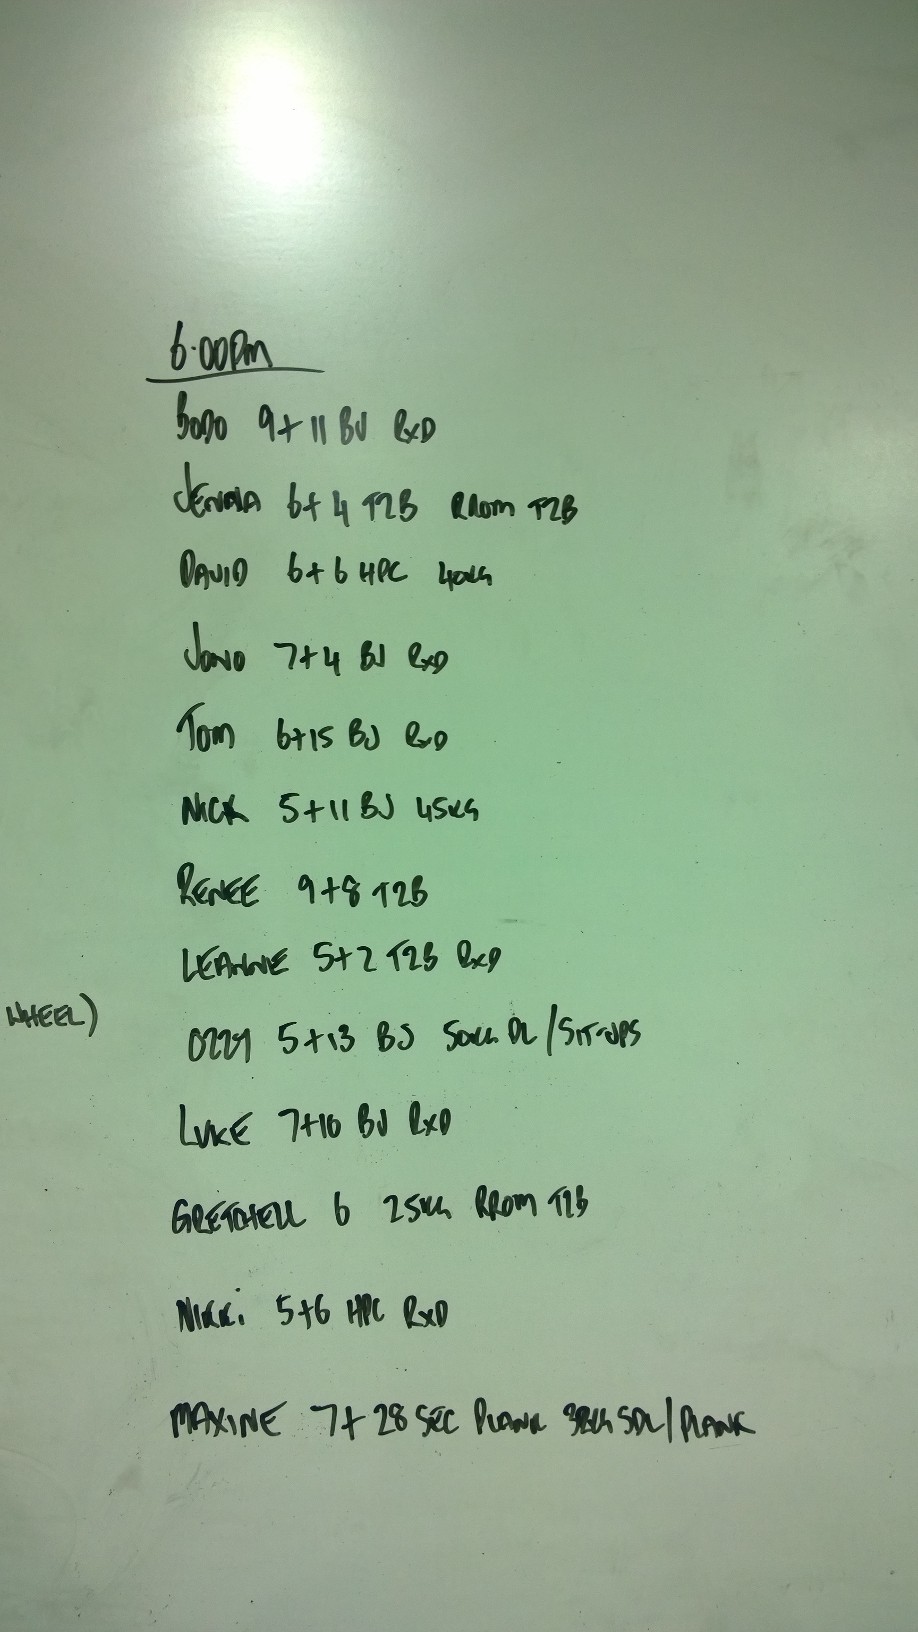 6.00pm
BODO 9+11 BJ RXD
JENNA 6+4 T2B RROM T2B
DAVID 6+6 HPC 40KG
JONO 7+4 BJ RXD
TOM 6+15 BJ RXD
NICK 5+11 BJ 45KG
RENEE 9+8 T2B
LEANNE 5+2 T2B RXD
WHEEL)
OZZY 5+13 BJ 50KG DL/SIT-UPS
LUKE 7+10 BJ RXD
GRETCHELL 6 25KG RROM T2B
NIKKi 5+6 HPC RXD
MAXINE 7+28 SEC PLANK SDL/PLANK